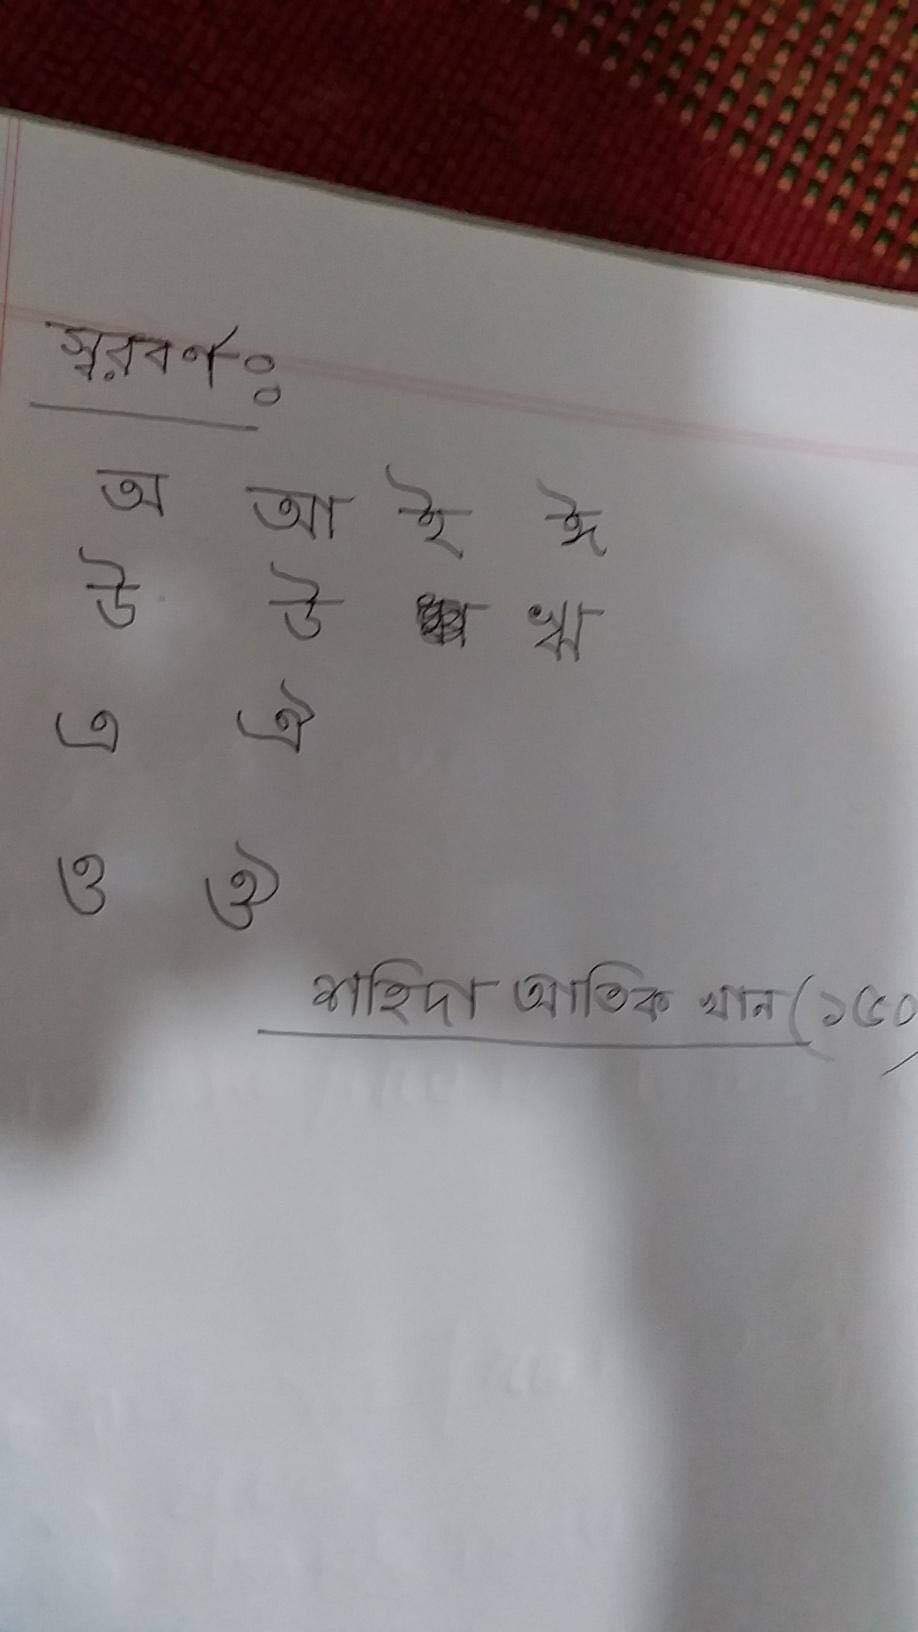 স্বরবর্ণঃ
অ আ ই ঈ
উ উ ঋ
এ ঐ
ও ঔ
শাহিদা আতিক খান (১৫০)